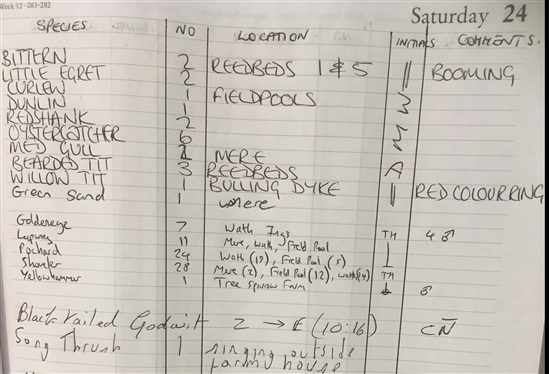 Week 12 · 083-282
Saturday 24
SPECIES NO LOCATION INITIALS COMMENTS.
BITTERN 2 REEDBEDS 1 & 5 || BOOMING
LITTLE EGRET 2
CURLEW 1 FIELDPOOLS
DUNLIN 1
REDSHANK 2
OYSTERCATCHER 6
MED GULL 2 MERE
BEARDED TIT 3 REEDBEDS
WILLOW TIT 1 BULLING DYKE || RED COLOUR RING
Green Sand 1 Mere
Goldeneye 7 Wath Ings TH 4 ♂
Lapwing 11 Mere, Wath, Field Pool
Pochard 24 Wath (19), Field Pool (5)
Shoveler 28 Mere (2), Field Pool (12), Wath (14) TH
Yellowhammer 1 Tree Sparrow Farm ♂
Black tailed Godwit 2 → E (10:16) CN
Song Thrush 1 singing outside
farm house